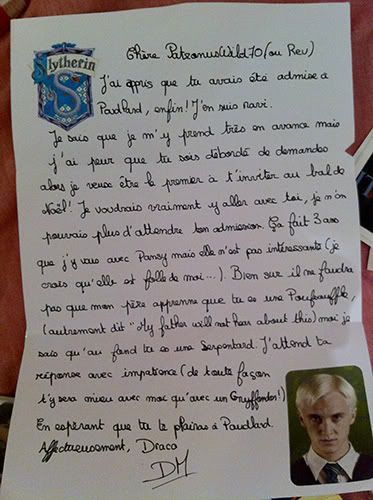 Slytherin
Chère PatronusWild70 (ou Rev)
J'ai appris que tu avais été admise à
Poudlard, enfin! J'en suis ravi.
Je sais que je m'y prend très en avance mais
j'ai peur que tu sois débordé de demandes
alors je veux être le premier à t'inviter au bal de
Noël! Je voudrais vraiment y aller avec toi, je n'en
pouvais plus d'attendre ton admission. Ça fait 3 ans
que j'y vais avec Pansy mais elle n'est pas intéressante (je
crois qu'elle est folle de moi...). Bien sur il ne faudra
pas que mon père apprenne que tu es une Poufsouffle,
(autrement dit "My father will not hear about this) moi je
sais qu'au fond tu es une Serpentard. J'attend ta
réponse avec impatience (de toute façon
t'y sera mieu avec moi qu'avec un Gryffondor!)
En espérant que tu te plairas à Poudlard.
Affectueusement, Draco
DM